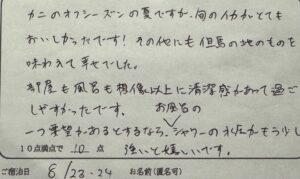 カニのオフシーズンの夏ですが、旬のイカがとても
おいしかったです！その他にも但馬の地のものを
味わえて幸せでした。
部屋も風呂も想像以上に清潔感があって過ご
しやすかったです。
お風呂の
一つ要望があるとするなら、シャワーの水圧がもう少し
強いと嬉しいです。
10点満点で 10 点
ご宿泊日 8/23-24 お名前(匿名可)